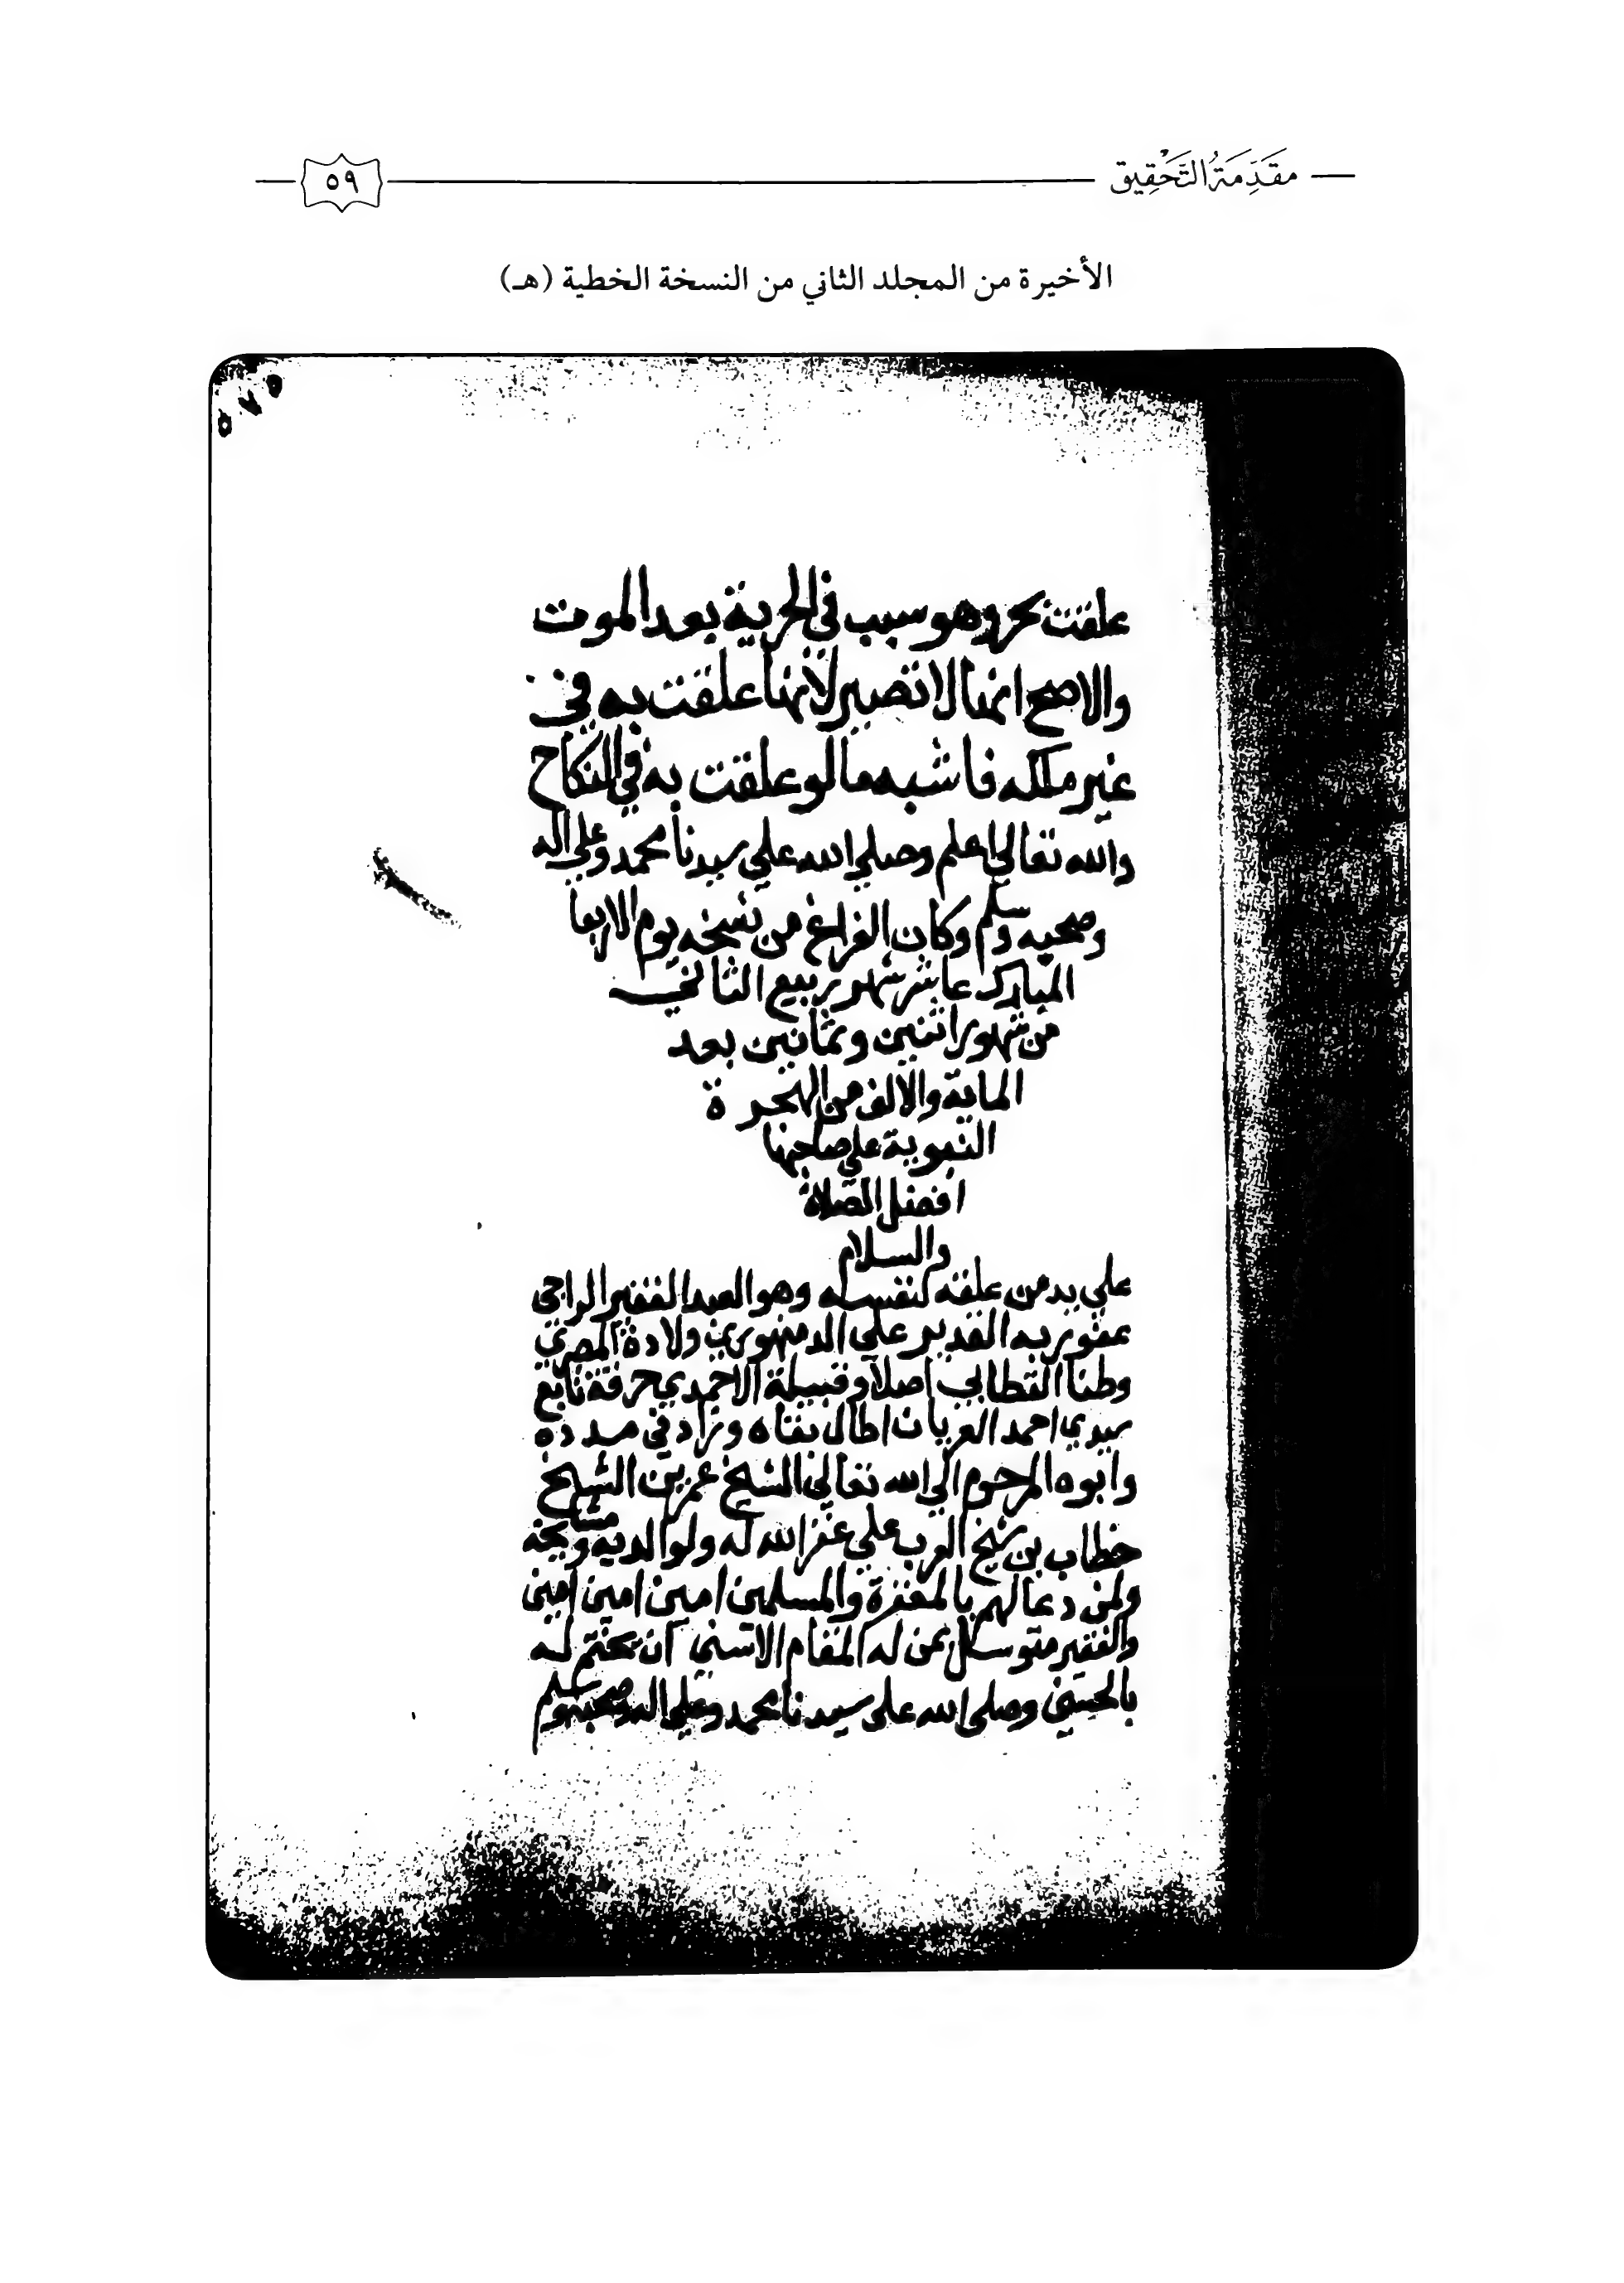 مقَدِّمَةُ التَّحْقِيق
٥٩
الأخيرة من المجلد الثاني من النسخة الخطية (هـ)
٥٧٥
علقت بحر وهو سبب في الحرية بعد الموت
والاصح انها لا تصير لانها علقت به في
غير ملكه فاشبه ما لو علقت به في النكاح
والله تعالى اعلم وصلي الله علي سيدنا محمد وعلي اله
وصحبه وسلم وكان الفراغ من نسخه يوم الاربعا
المبارك عاشر شهر ربيع الثاني
من شهور اثنين وثمانين بعد
الماية والالف من الهجرة
النبوية علي صاحبها
افضل الصلاة
والسلام
علي يد من علقه لنفسه وهو العبد الفقير الراجي
عفو ربه القدير علي الدمنهوري ولادة المصري
وطنا الخطابي اصلا وقبيلة الاحمدي خرقة تابع
سيدي احمد العريان اطال بقاه وزاد في مدده
وابوه المرحوم الي الله تعالي الشيخ عمر بن الشيخ
خطاب بن شيخ العرب علي غفر الله له ولوالديه ومشايخه
ولمن دعا لهم بالمغفرة والمسلمين امين امين امين
والفقير متوسل بمن له المقام الاسني ان يختم له
بالحسني وصلي الله علي سيدنا محمد وعلي اله وصحبه وسلم